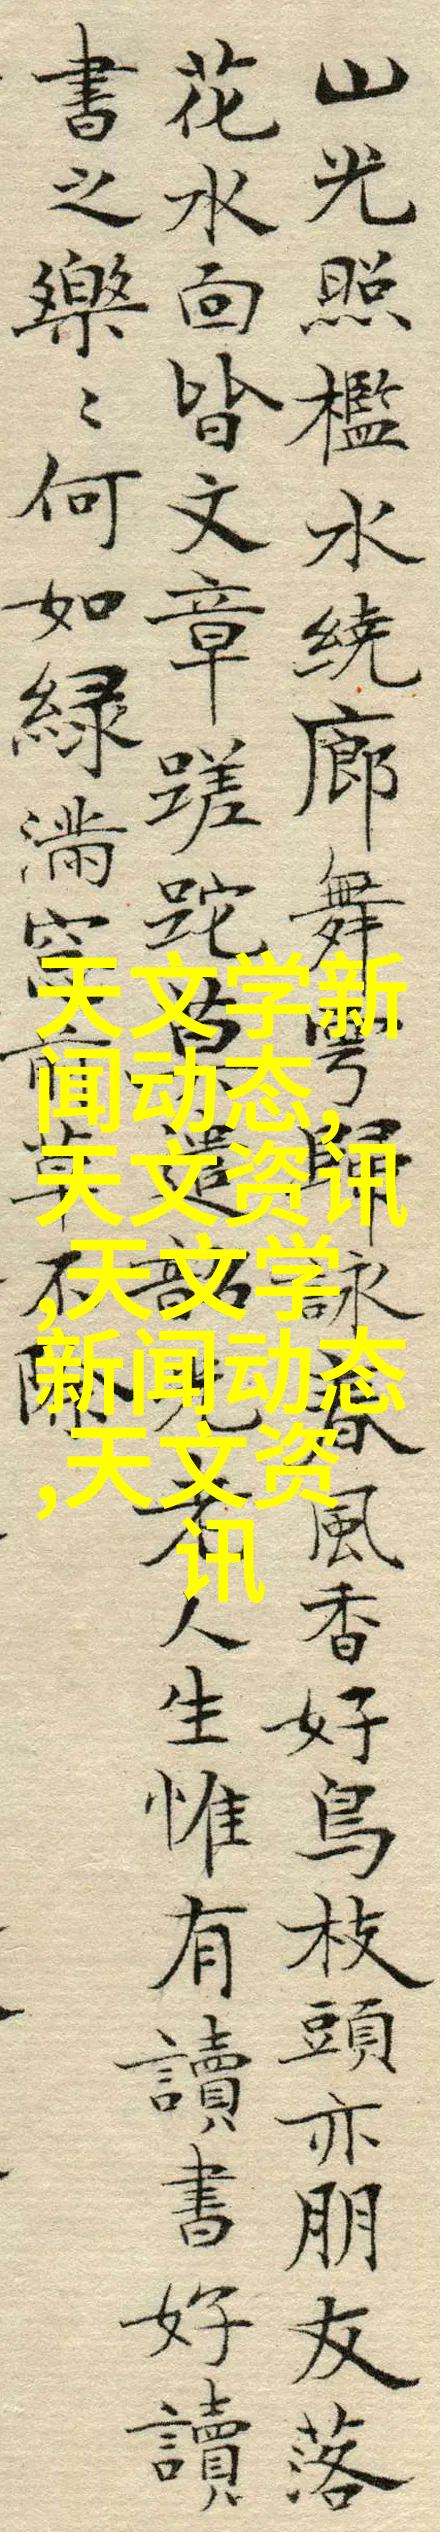 山光照檻水繞廊舞雩歸詠春風香好鳥枝頭亦朋友落
花水面皆文章蹉跎莫遣韶光老人生惟有讀書好讀
書之樂〻何如綠滿窗前草不除
天文学新
闻动态,
天文资讯
,天文学
新闻动态
,天文资
讯